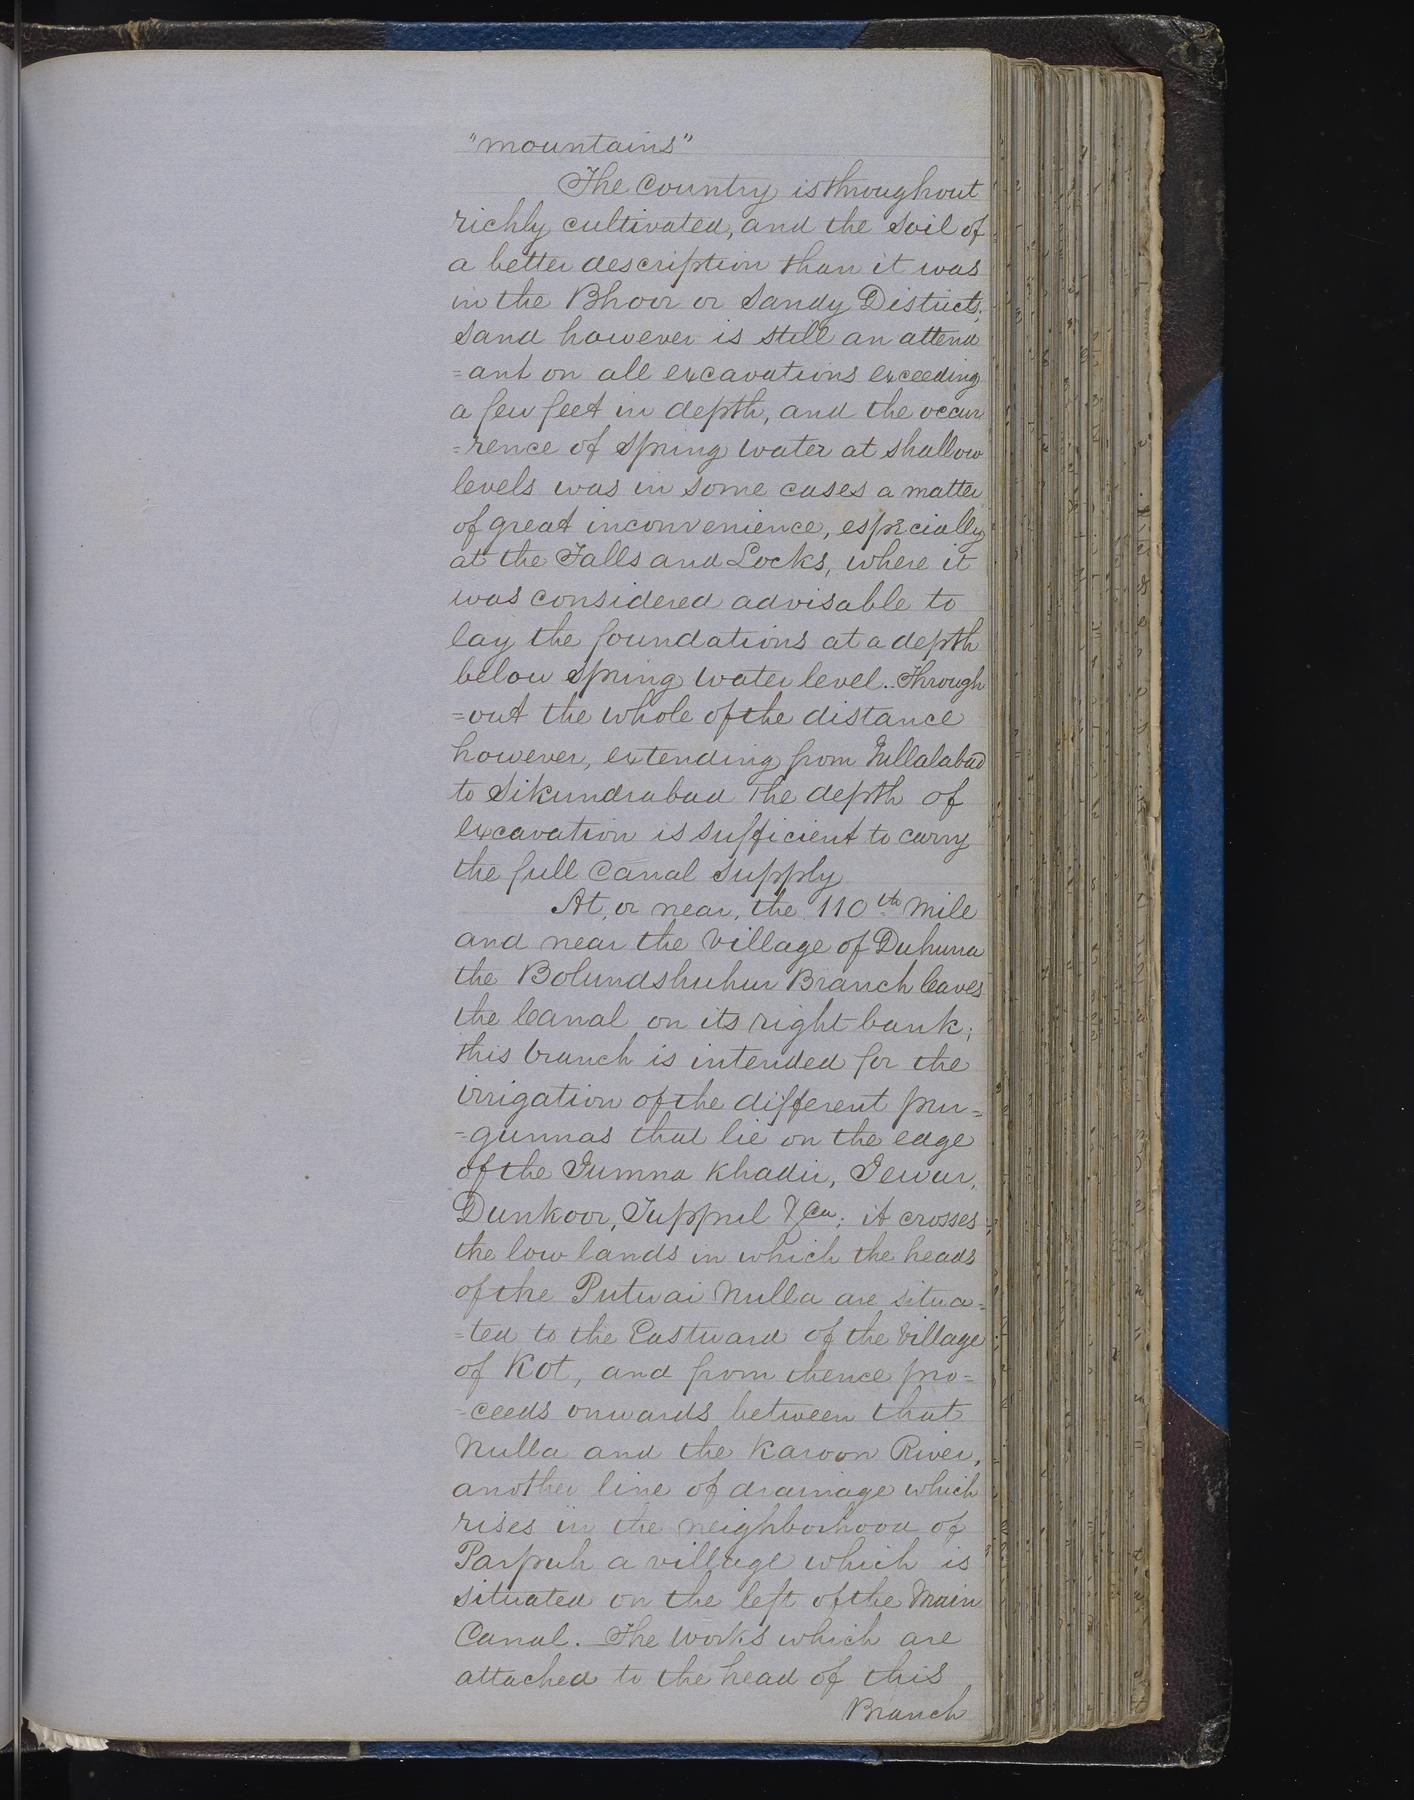 "mountains"
The Country is throughout
richly cultivated, and the soil of
a better description than it was
in the Bhoor or Sandy Districts;
Sand however is still an attend
=ant on all excavations exceeding
a few feet in depth, and the occur
=rence of Spring water at shallow
levels was in some cases a matter
of great inconvenience, especially
at the Falls and Locks, where it
was considered advisable to
lay the foundations at a depth
below Spring water level. Through
=out the whole of the distance
however, extending from Jullalabad
to Sikundrabad the depth of
excavation is sufficient to carry
the full Canal Supply
At, or near, the 110th mile
and near the Village of Duhuna
the Bolundshuhur Branch leaves
the Canal on its right bank;
this branch is intended for the
irrigation of the different pur=
=gunnas that lie on the edge
of the Jumna Khadir, Jewur,
Dunkoor, Tuppul &Ca; it crosses
the low lands in which the heads
of the Putwai Nulla are situa=
=ted to the Eastward of the Village
of Kot, and from thence pro=
=ceeds onwards between that
Nulla and the Karoon River,
another line of drainage which
rises in the neighborhood of
Parpuh a village which is
situated on the left of the Main
Canal. The Works which are
attached to the head of this
Branch